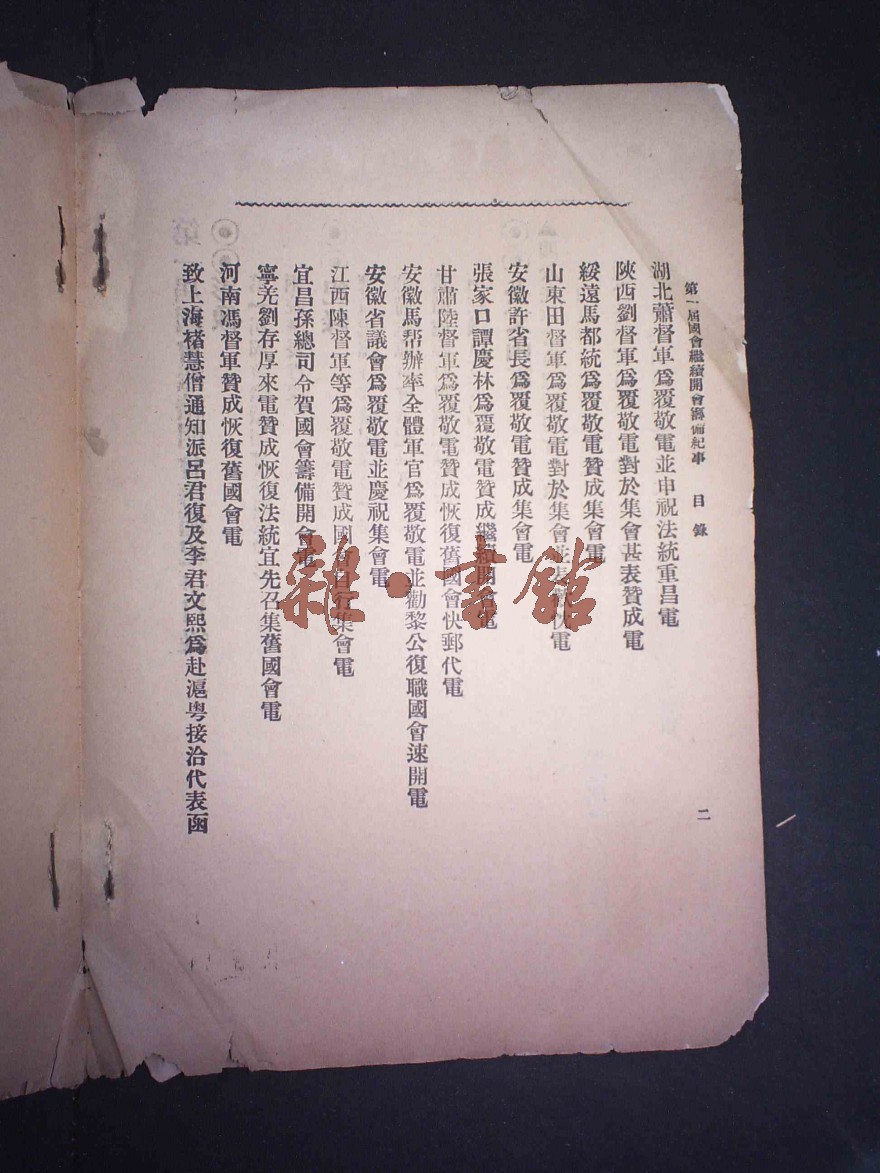 第一屆國會繼續開會籌備紀事　目錄
二
湖北蕭督軍爲覆敬電並申祝法統重昌電
陝西劉督軍爲覆敬電對於集會甚表贊成電
綏遠馬都統爲覆敬電贊成集會電
山東田督軍爲覆敬電對於集會並表歡忱電
安徽許省長爲覆敬電贊成集會電
張家口譚慶林爲覆敬電贊成繼續開會電
甘肅陸督軍爲覆敬電贊成恢復舊國會快郵代電
安徽馬帮辦率全體軍官爲覆敬電並勸黎公復職國會速開電
安徽省議會爲覆敬電並慶祝集會電
江西陳督軍等爲覆敬電贊成國會自行集會電
宜昌孫總司令賀國會籌備開會電
寧羌劉存厚來電贊成恢復法統宜先召集舊國會電
河南馮督軍贊成恢復舊國會電
致上海褚慧僧通知派呂君復及李君文熙爲赴滬粵接洽代表函
雜·書館